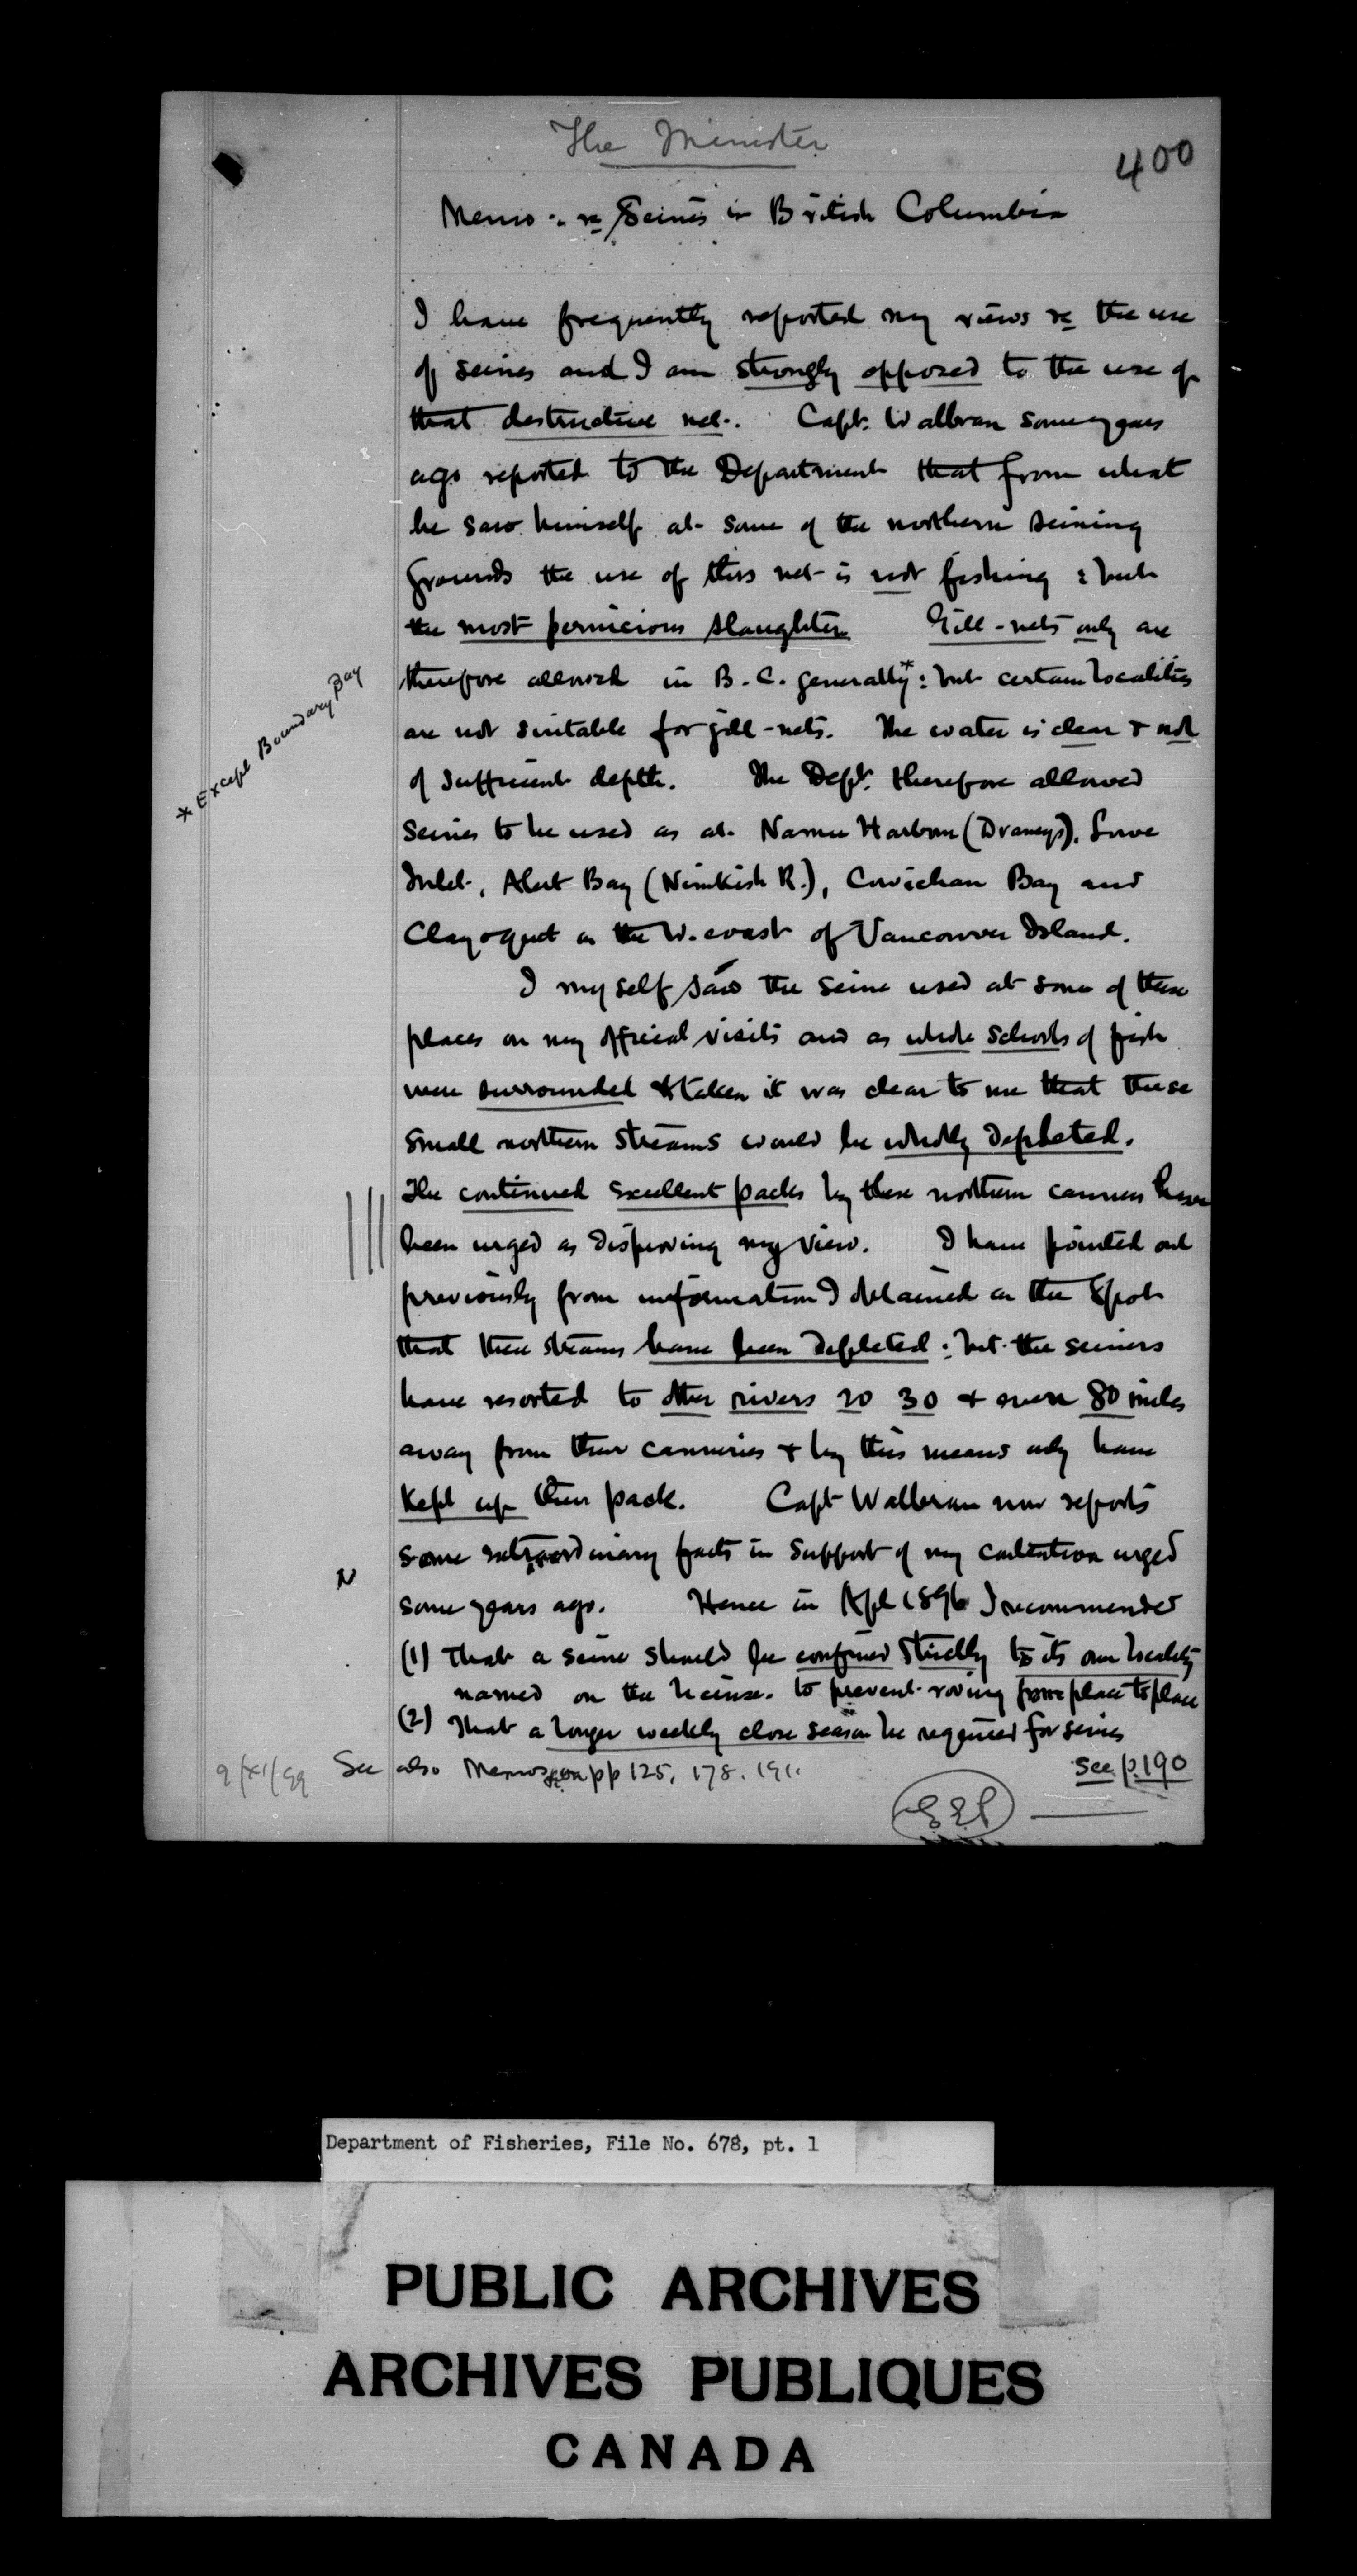 The Minister
400
Memo. re Seines in British Columbia
I have frequently reported my views re the use
of seines and I am strongly opposed to the use of
that destructive net. Capt. Walbran some years
ago reported to the Department that from what
he saw himself at some of the northern seining
grounds the use of this net is not fishing : but
the most pernicious slaughter Gill-nets only are
therefore allowed in B.C. generally* : but certain localities
* Except Boundary Bay
are not suitable for gill-nets. The water is clear & not
of sufficient depth. The Dept. therefore allowed
Seines to be used as at Namu Harbour (Draneys), Lowe
Inlet, Alert Bay (Nimkish R.), Cowichan Bay and
Clayoquot on the W. coast of Vancouver Island.
I myself saw the seine used at some of these
places on my official visits and as whole schools of fish
were surrounded & taken it was clear to me that these
small northern streams would be wholly depleted.
The continued excellent packs by these northern canners have
been urged as disproving my view. I have pointed out
previously from information I obtained on the spot
that these streams have been depleted : but the seiners
have resorted to other rivers 20 30 & even 80 miles
away from their canneries & by this means only have
kept up their pack. Capt Walbran now reports
some extraordinary facts in support of my contention urged
some years ago. Hence in Apl 1896 I recommended
(1) That a seine should be confined strictly to its own locality
named on the license. to prevent roving from place to place
(2) That a longer weekly close season be required for seines
9/xi/99 See also Memos on pp 125, 178, 191. see p.190
EEP
Department of Fisheries, File No. 678, pt. 1
PUBLIC ARCHIVES
ARCHIVES PUBLIQUES
CANADA